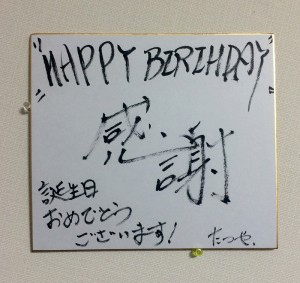 "HAPPY BIRIHDAY"
感謝
誕生日
おめでとう
ございます!
たつや、